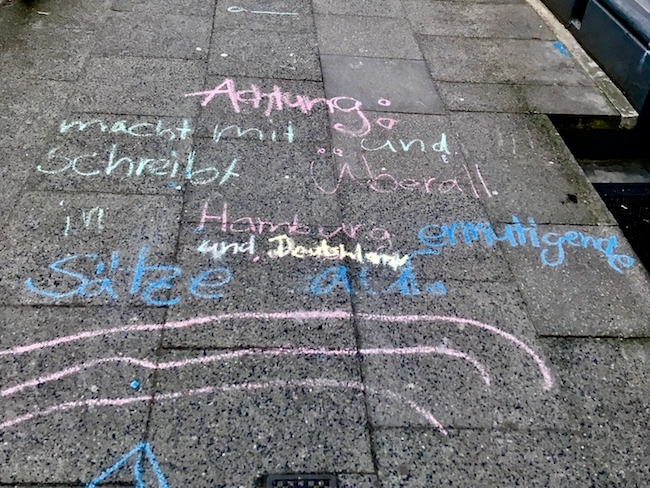 Achtung:
macht mit und
schreibt überall
in Hamburg ermutigende
und Deutschland
Sätze auf.